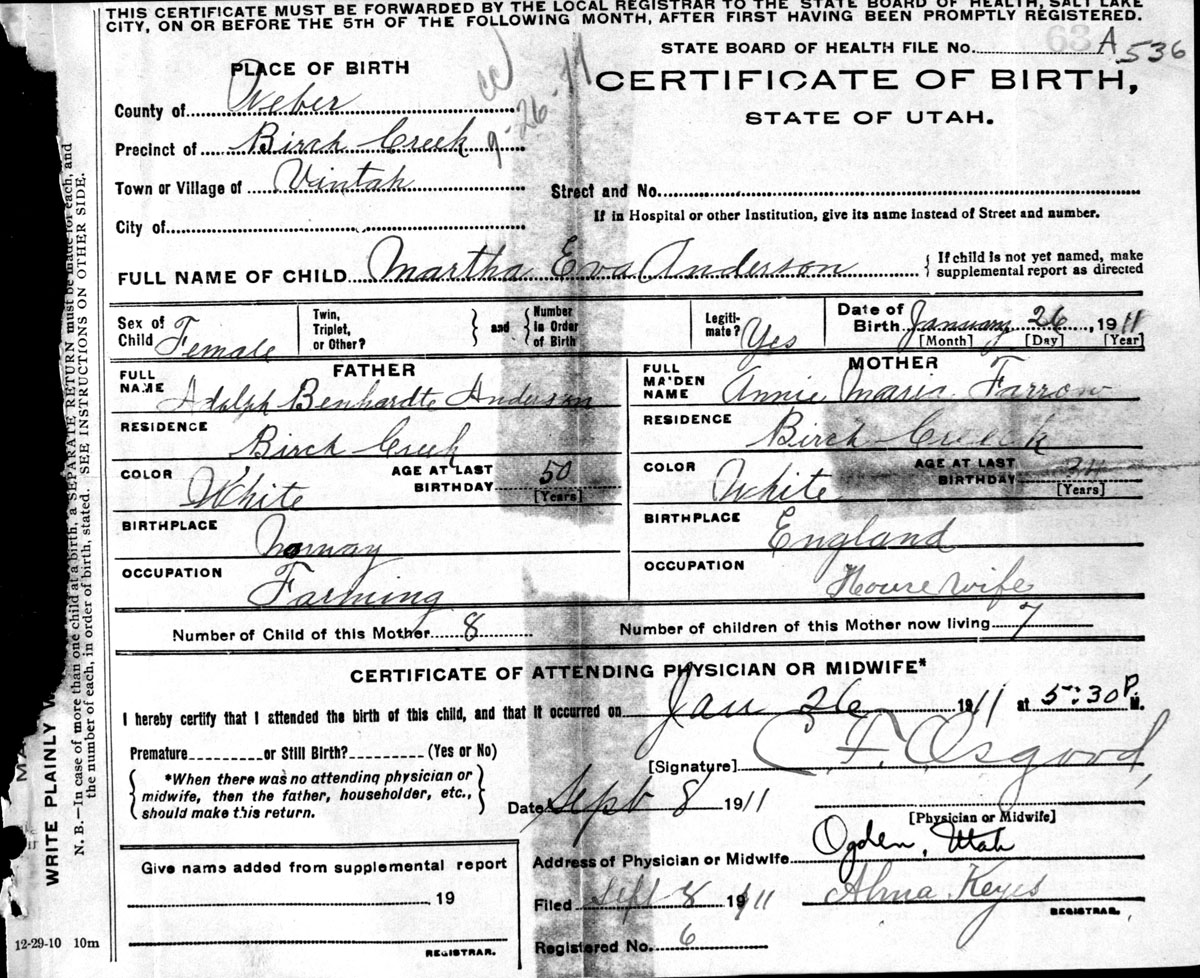 THIS CERTIFICATE MUST BE FORWARDED BY THE LOCAL REGISTRAR TO THE STATE BOARD OF HEALTH, SALT LAKE
CITY, ON OR BEFORE THE 5TH OF THE FOLLOWING MONTH, AFTER FIRST HAVING BEEN PROMPTLY REGISTERED.
STATE BOARD OF HEALTH FILE No. A 536
PLACE OF BIRTH
CERTIFICATE OF BIRTH,
STATE OF UTAH.
County of Weber
9-26-
Precinct of Birch Creek
Town or Village of Uintah
Street and No.
If in Hospital or other Institution, give its name instead of Street and number.
City of
FULL NAME OF CHILD Martha Eva Anderson { If child is not yet named, make supplemental report as directed
Sex of Child Female
Twin, Triplet, or Other? } and { Number in Order of Birth
Legiti-mate? Yes
Date of Birth January 26, 1911
[Month] [Day] [Year]
FATHER
FULL NAME Adolph Benhardte Anderson
RESIDENCE Birch Creek
COLOR White
AGE AT LAST BIRTHDAY 50 [Years]
BIRTHPLACE Norway
OCCUPATION Farming
MOTHER
FULL MAIDEN NAME Annie Marie Farrow
RESIDENCE Birch Creek
COLOR White
AGE AT LAST BIRTHDAY 34 [Years]
BIRTHPLACE England
OCCUPATION House wife
Number of Child of this Mother 8
Number of children of this Mother now living 7
CERTIFICATE OF ATTENDING PHYSICIAN OR MIDWIFE*
I hereby certify that I attended the birth of this child, and that it occurred on Jan 26 1911 at 5:30 P. M.
Premature or Still Birth? (Yes or No)
[Signature] C. F. Osgood,
{ *When there was no attending physician or midwife, then the father, householder, etc., should make this return. }
Date Sept 8 1911
[Physician or Midwife]
Address of Physician or Midwife Ogden, Utah
Give name added from supplemental report
19
REGISTRAR.
Filed Sept 8 1911
Alma Keyes
REGISTRAR.
Registered No. 6
12-29-10 10m
WRITE PLAINLY W
N. B.—In case of more than one child at a birth, a SEPARATE RETURN must be made for each, and
the number of each, in order of birth, stated. SEE INSTRUCTIONS ON OTHER SIDE.